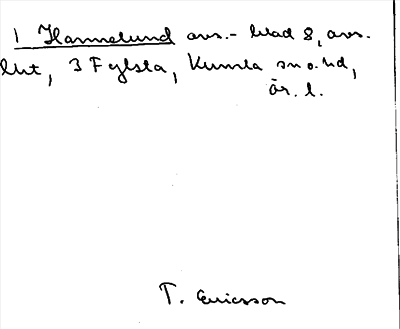 1 Hannelund avs.- blad 8, avs.
blit, 3 Fylsta, Kumla sn o. hd,
ör. l.
T. Ericsson